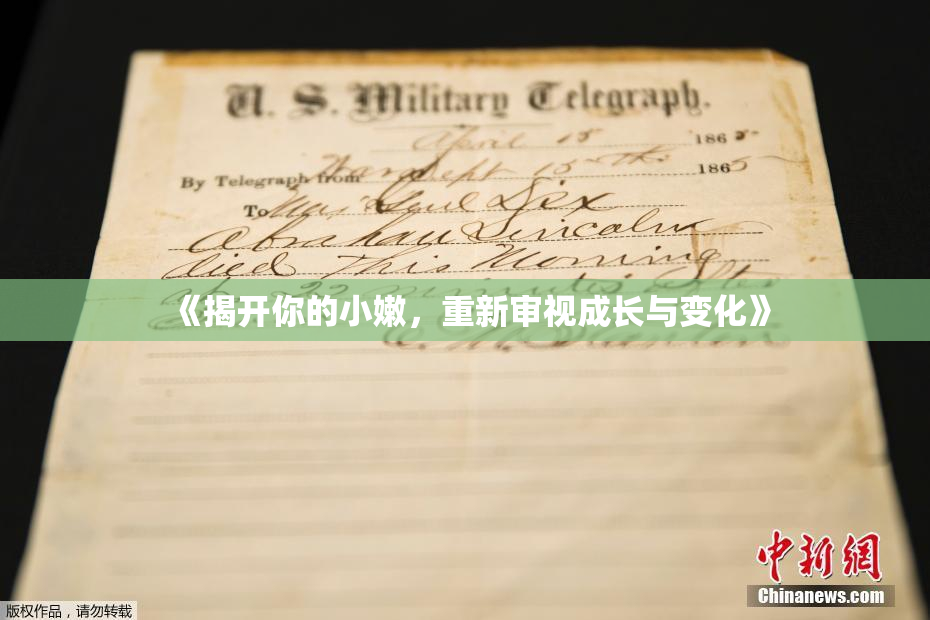 U. S. Military Telegraph.
April 15 1865
By Telegraph from War Dept 15th 1865
To Maj Genl Dix
Abraham Lincoln
died This Morning
22 minutes after
《揭开你的小嫩，重新审视成长与变化》
E. M. Stanton
中新网
Chinanews.com
版权作品，请勿转载